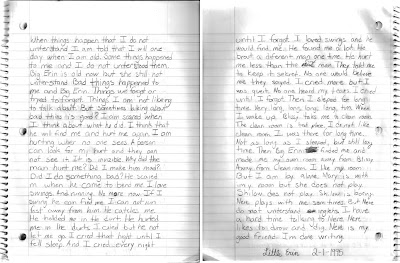 When things happen that I do not
understand I am told that I will one
day when I am old. Some things happened
to me and I do not understood them.
Big Erin is old now but she still not
understand. Bad things happened to
me and Big Erin. Things we forgot or
tryed to forget. Things I am not liking
to talk about. But sometimes talking about
bad things is good? I am scared when
I think about what he did. I think
he will find me and hurt me again. I am
hurting when no one sees. A person
can look for my hurt and they can
not see it. It is invisible. Why did the
man hurt me? Did I make him mad?
Did I do something bad? He scared
me when he came to send me. I love
swings. And running. No more now. If I
swing he can find me. I can not run
fast away from him. He catches me.
He holded me in the dirt. He hurted
me in the dirt. I cried but he not
let me go. I cried that hurt until I
tell story. And I cried every night
until I forgot. I loved swings and he
would find me. He found me a lot. He
brout a different man one time. He hurt
me less than the man. They told me
to keep it secret. No one would believe
me they sayed. I cried more but I
was quiet. No one heard my tears. I cried
until I forgot. Then I sleped for long
time. Very long, long, long, long time. When
I woke up Bitsy take me to clean room.
The clean room is nice. I did like
clean room. I was there for long time.
Not as long as I sleeped, but still long
time. Then Big Erin finded me and
made us my own room away from Bitsy
away from Clean room. I like my room.
But I am lonly alone. Mary is with
my room but she does not play.
Shilow does not play. Shilow is funny.
Nora plays with me sometimes. But Nora
do not understand my signs. I have
a hard time talking to Nora. Nora
likes to dance and I do. Nora is my
good friend. I'm done writing.
Little Erin 2-1-1995